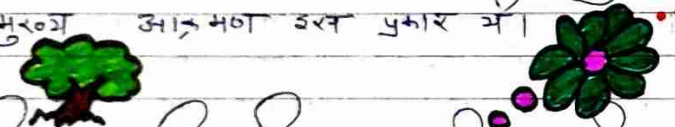 मुख्य आक्रमण इस प्रकार थे।